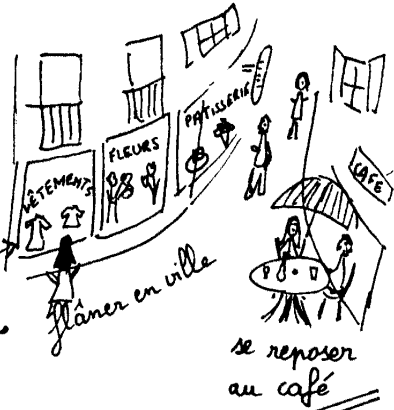 VÊTEMENTS
FLEURS
PATISSERIE
CAFE
flâner en ville
se reposer
au café